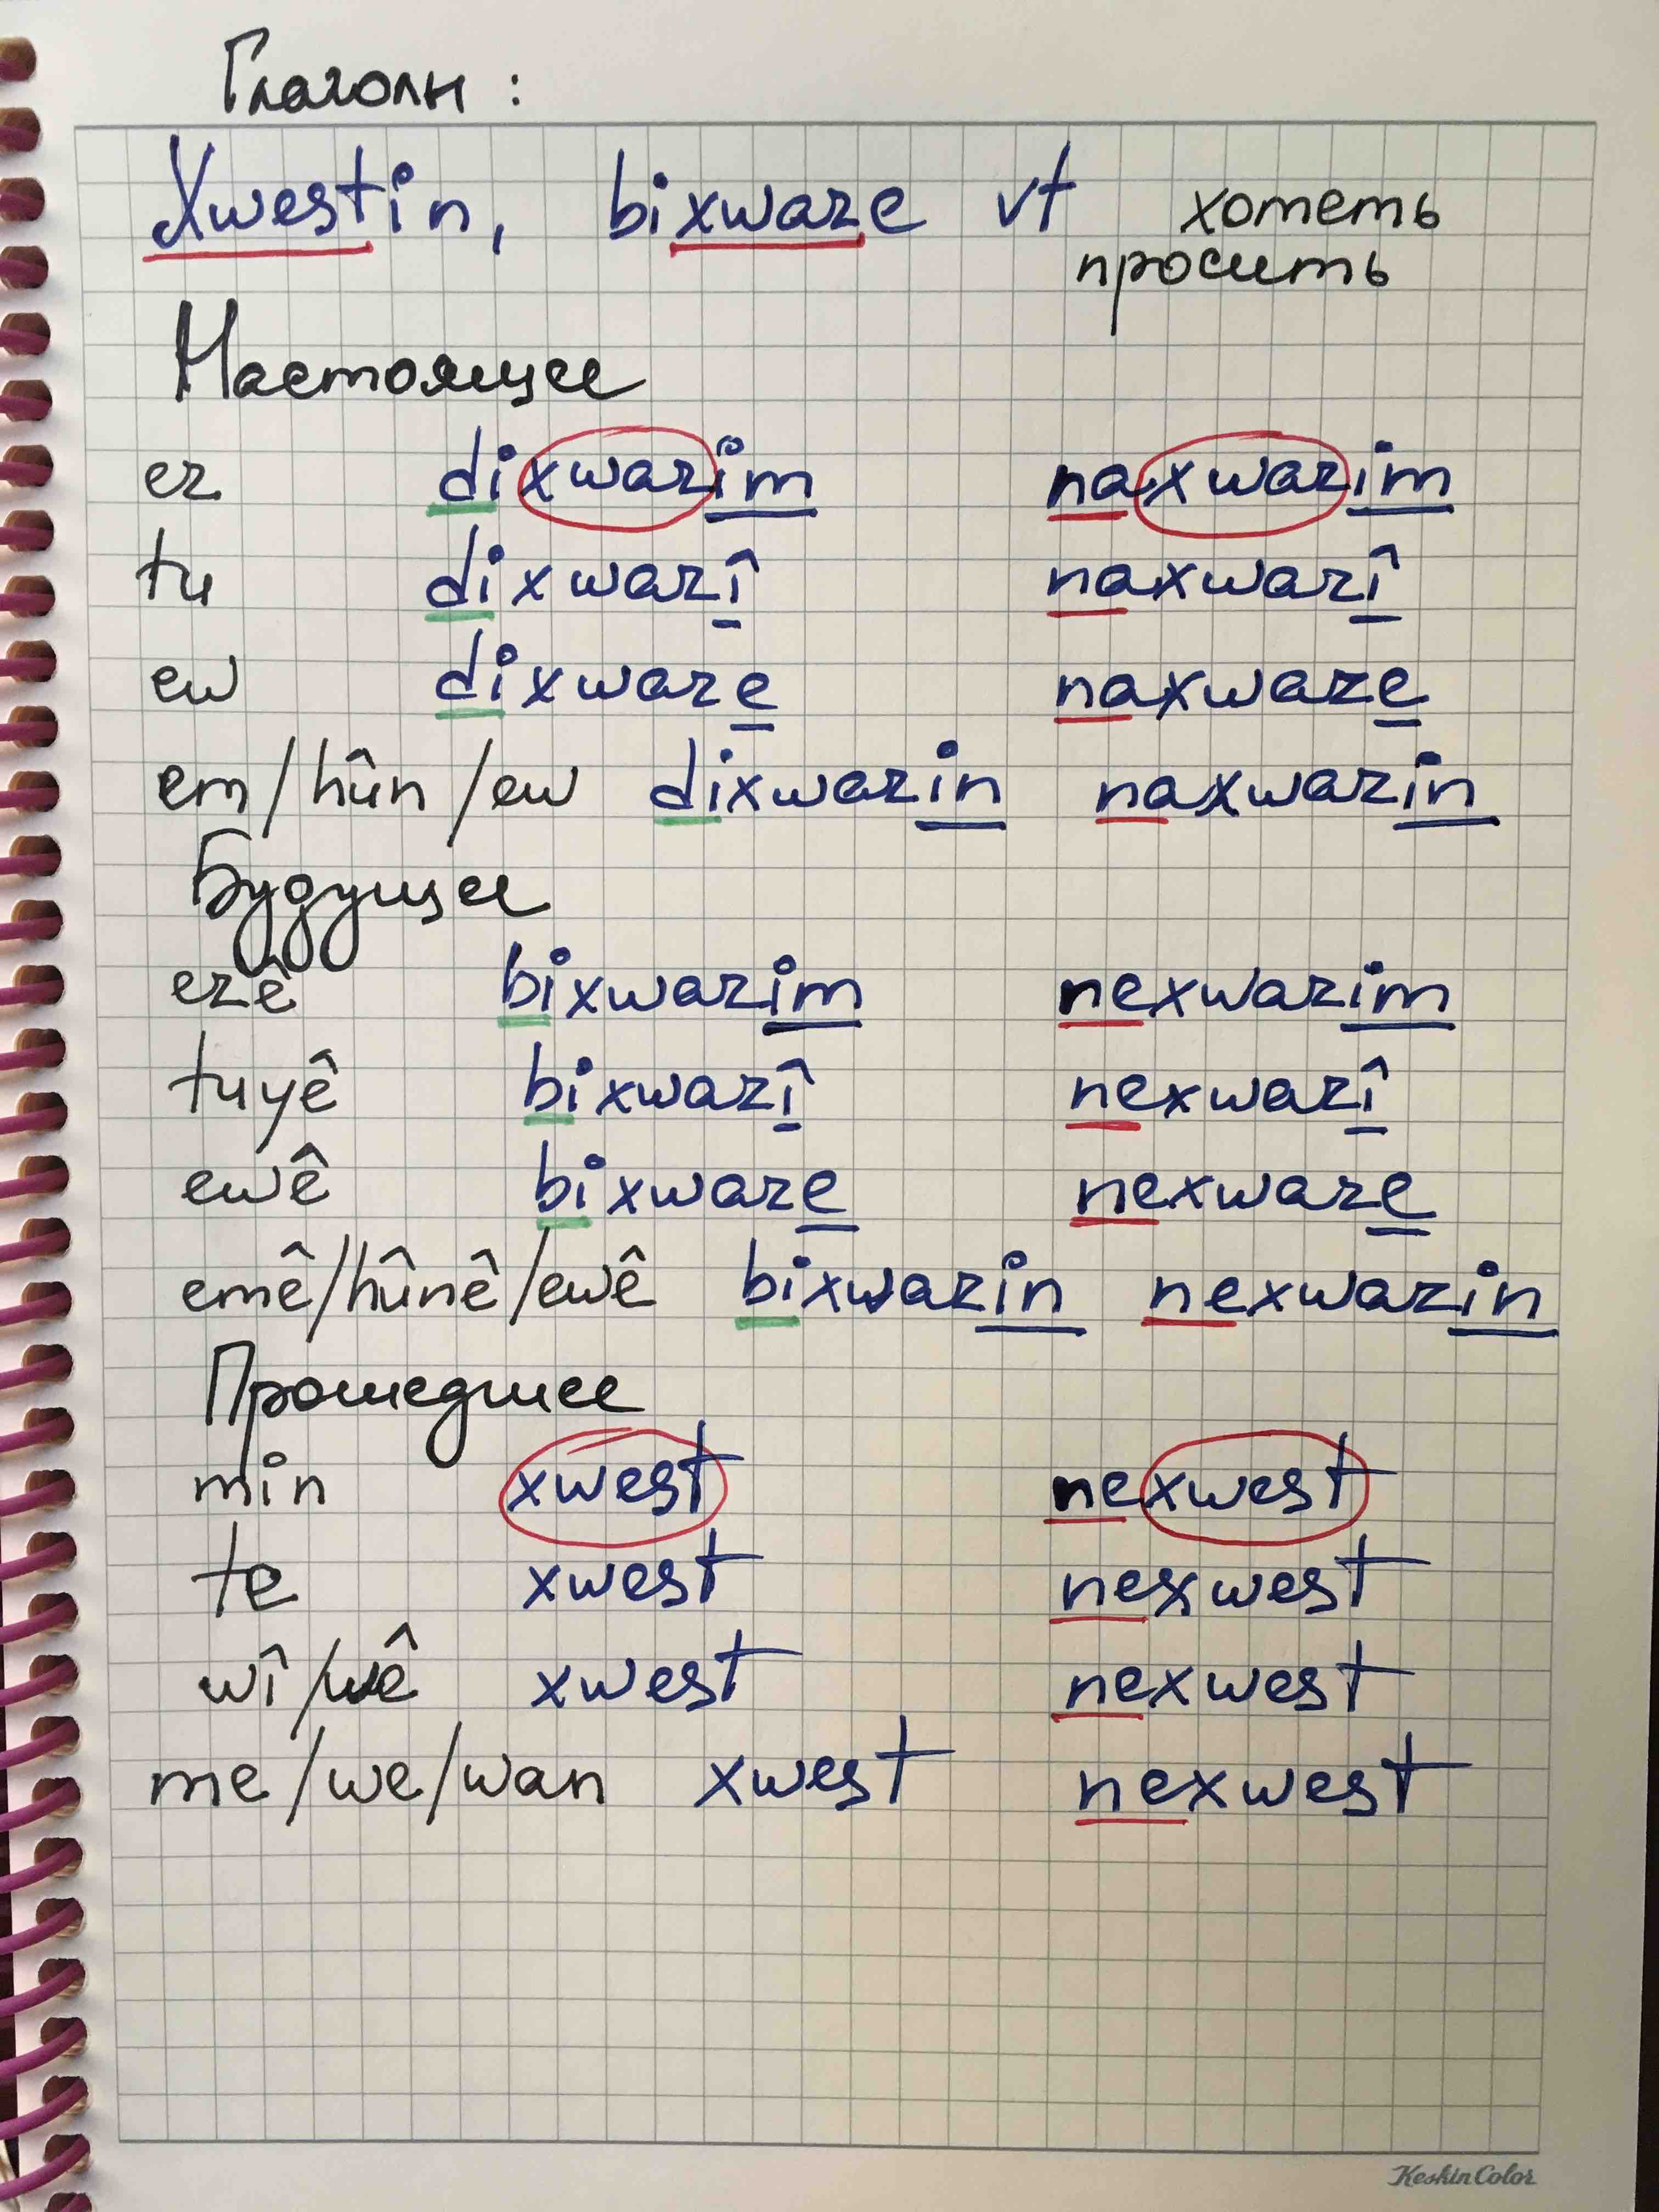 Глаголы :
Xwestin, bixwaze vt хотеть
просить
Настоящее
ez dixwazim naxwazim
tu dixwazî naxwazî
ew dixwaze naxwaze
em/hûn/ew dixwazin naxwazin
Будущее
ezê bixwazim nexwazim
tuyê bixwazî nexwazî
ewê bixwaze nexwaze
emê/hûnê/ewê bixwazin nexwazin
Прошедшее
min xwest nexwest
te xwest nexwest
wî/wê xwest nexwest
me/we/wan xwest nexwest
KeskinColor